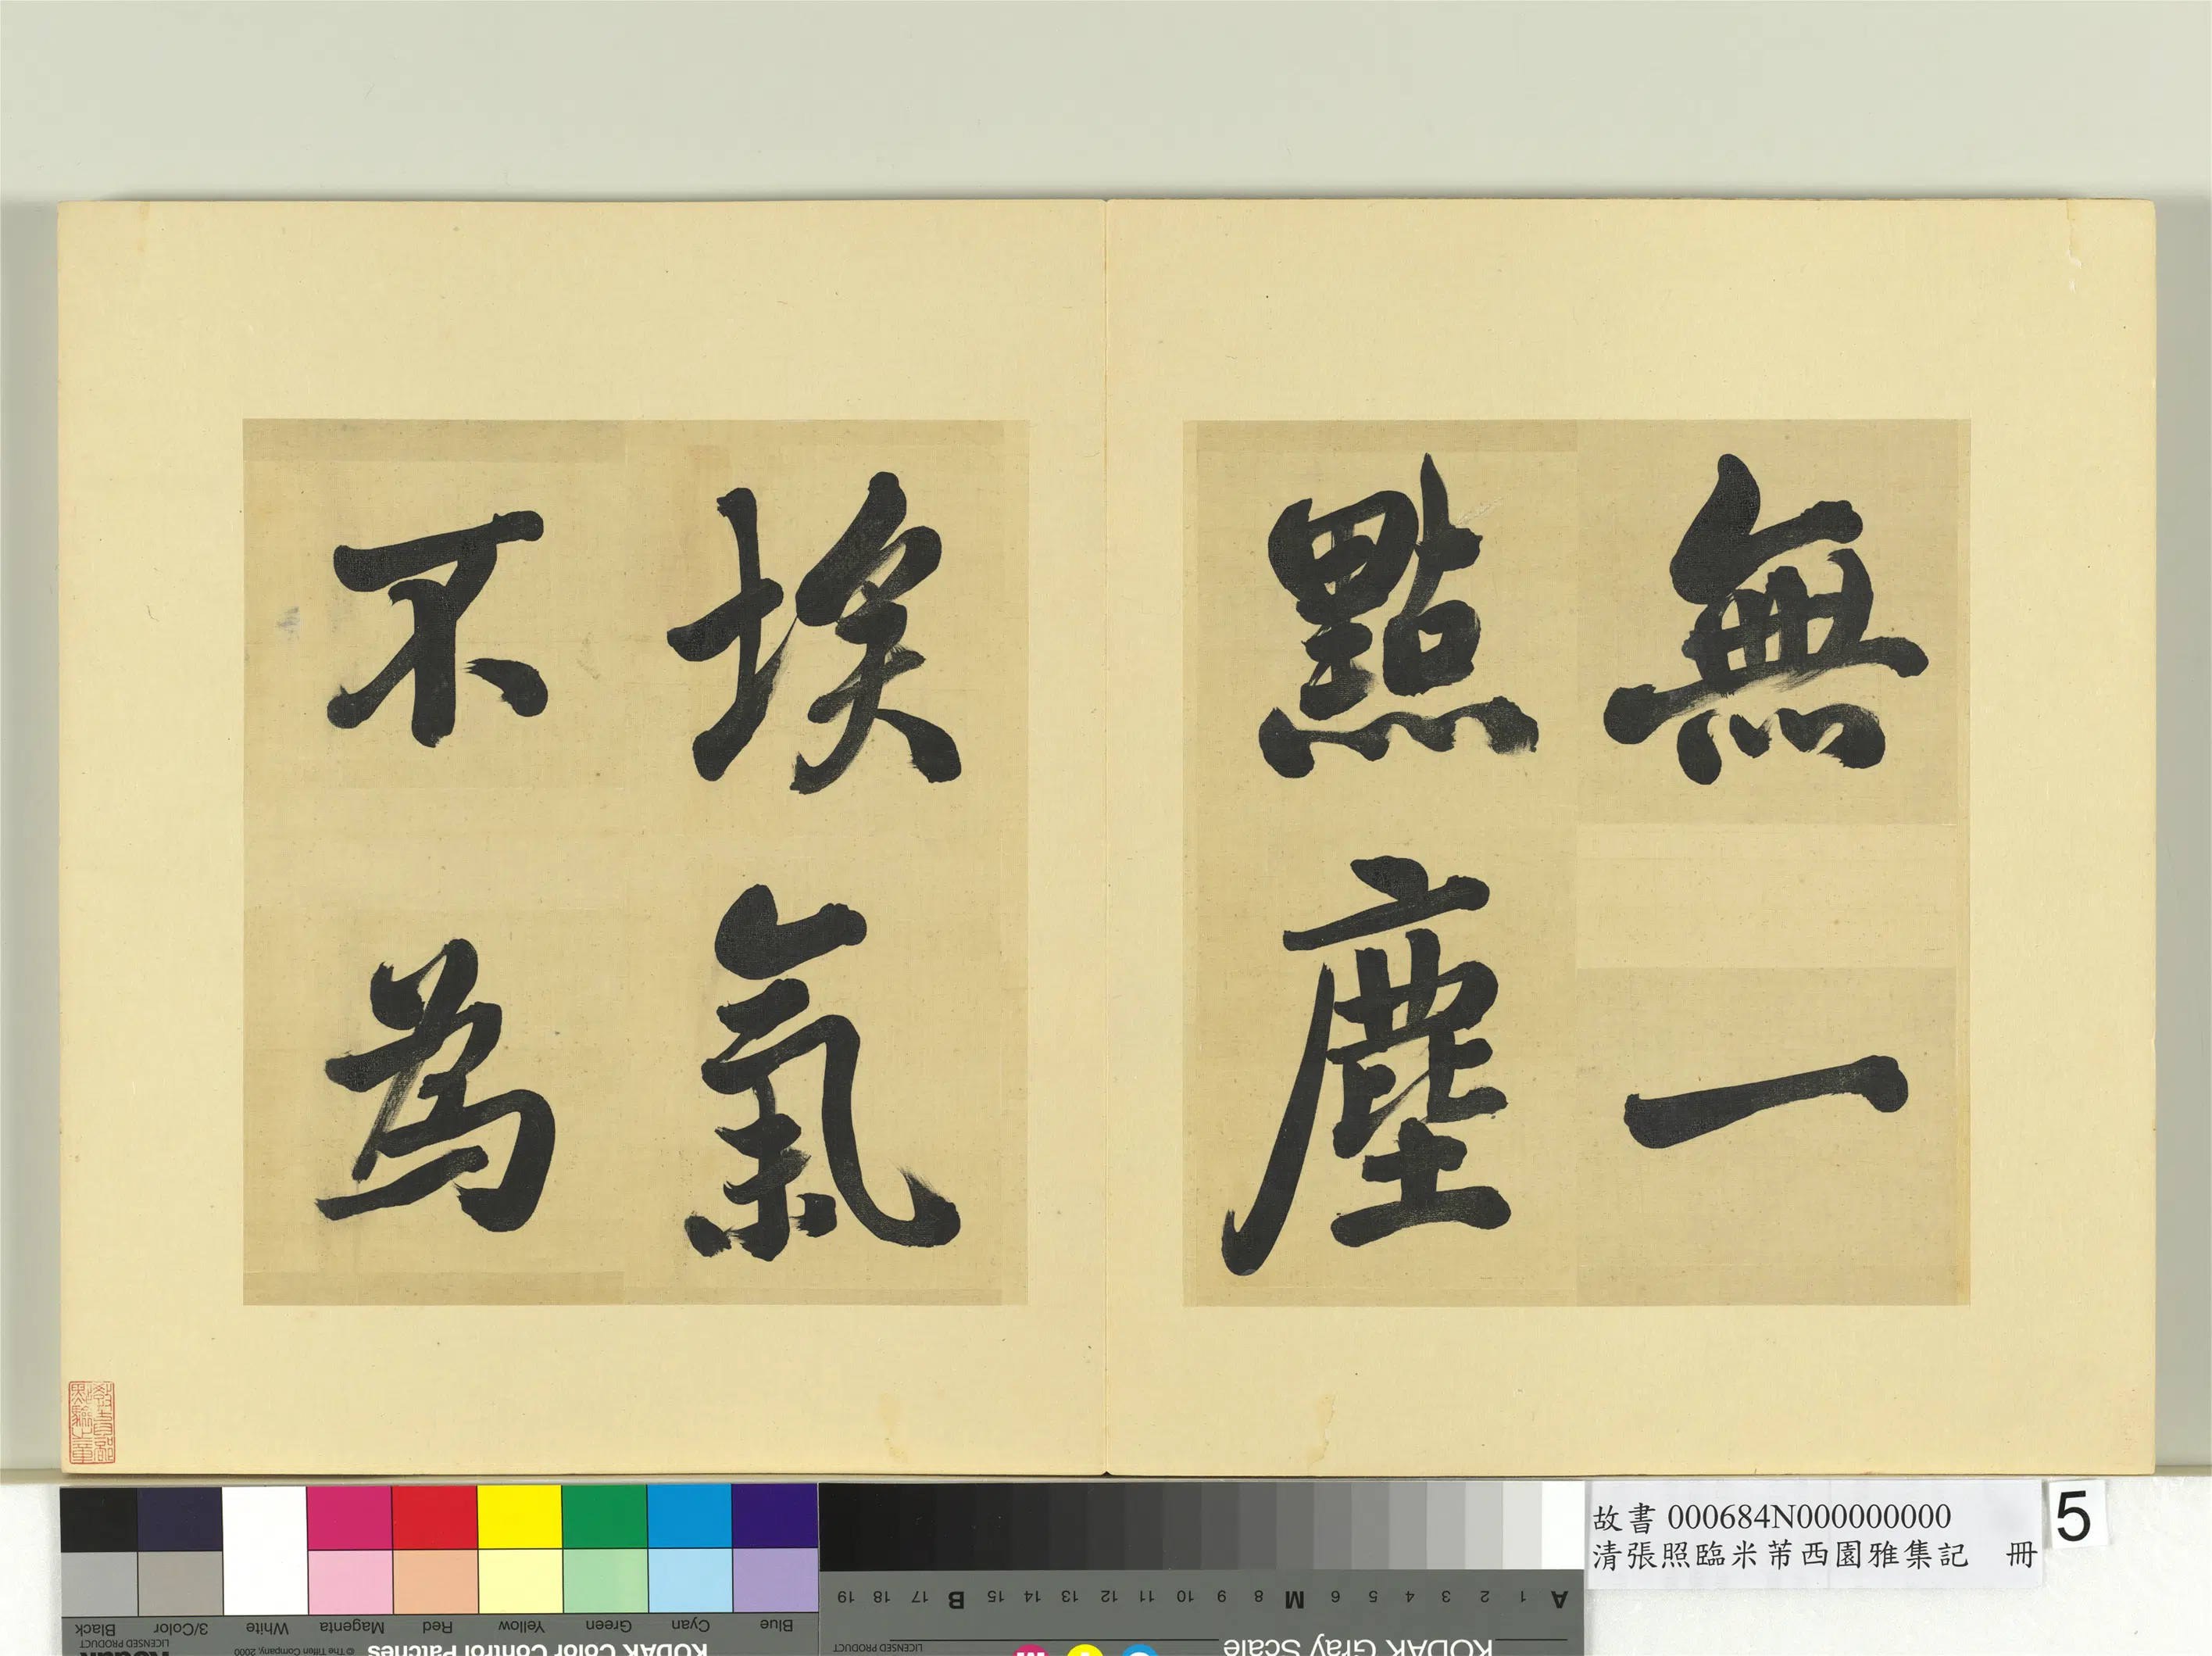 無一
點塵
埃氣
不為
故書 000684N000000000
清張照臨米芾西園雅集記 冊
5
Black 3/Color White Magenta Red Yellow Green Cyan Blue
LICENSED PRODUCT
© The Tiffen Company, 2000
KODAK Color Control Patches
Kodak
A 1 2 3 4 5 6 M 8 9 10 11 12 13 14 15 B 17 18 19
KODAK Gray Scale
LICENSED PRODUCT
C Y M